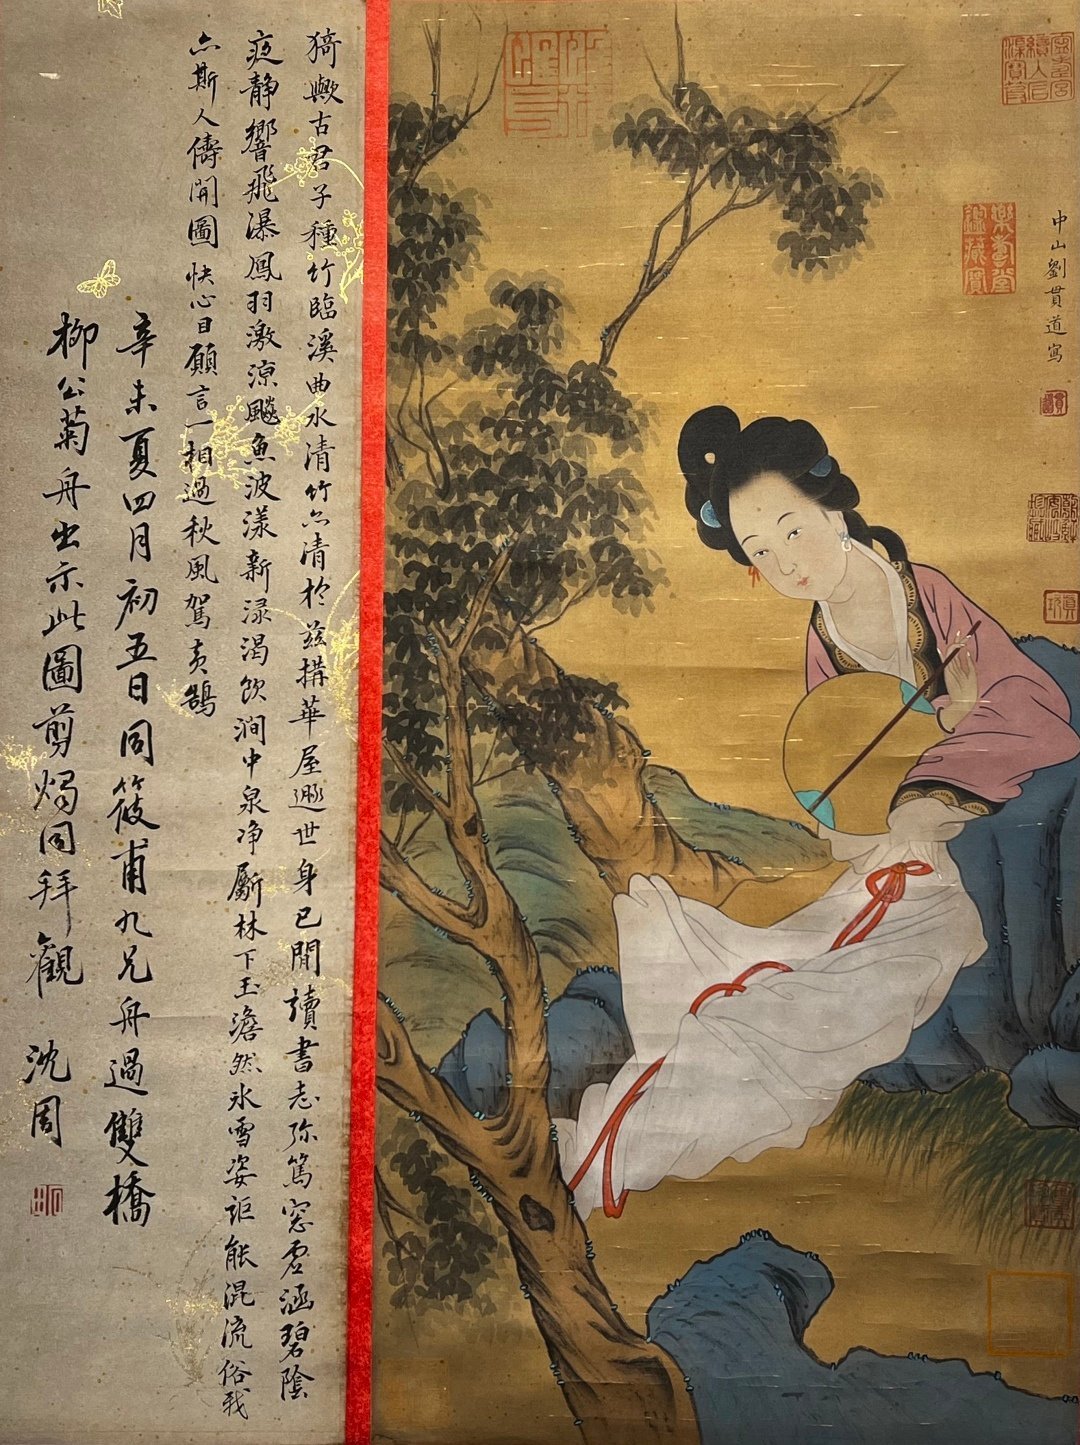 中山劉貫道寫
猗歟古君子種竹臨溪曲水清竹亦清於茲搆華屋遯世身已閒讀書志弥篤窓虛涵碧陰
夜静響飛瀑鳳羽激涼飈魚波漾新渌渴飲澗中泉净斸林下玉澹然氷雪姿詎能混流俗我
亦斯人儔開圖快心目願言一相過秋風駕黃鵠
辛未夏四月初五日同筱甫九兄舟過雙橋
柳公菊舟出示此圖剪燭同拜觀 沈周